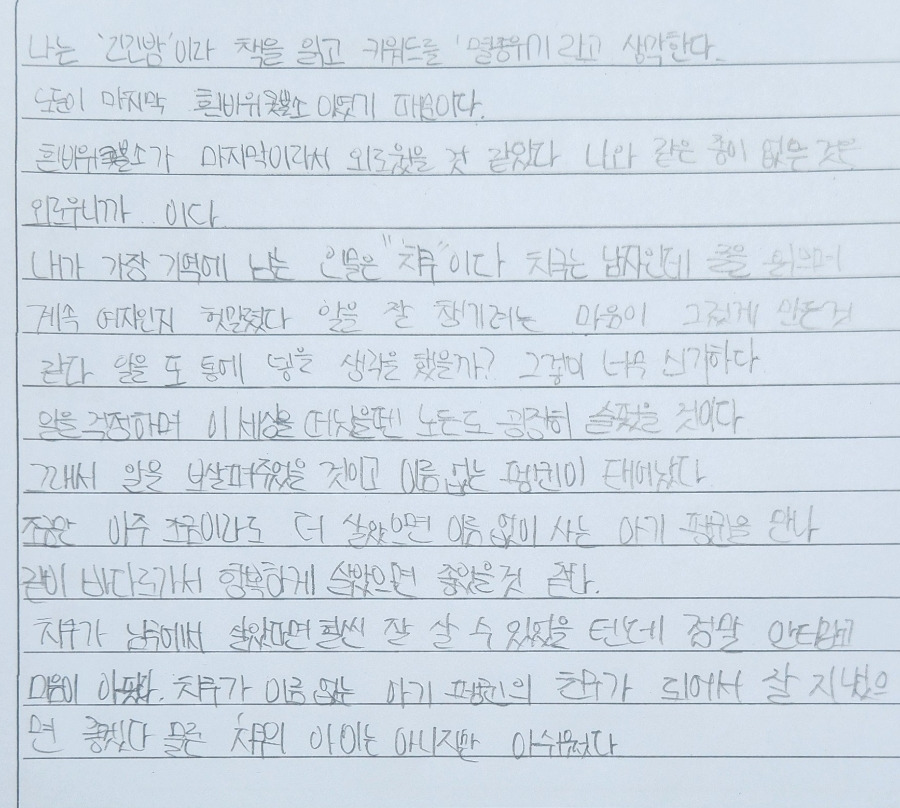 나는 '긴긴밤'이라 책을 읽고 키워드를 '멸종위기'라고 생각한다.
노든이 마지막 흰바위코뿔소 이였기 때문이다.
흰바위코뿔소가 마지막이라서 외로웠을 것 같았다 나와 같은 종이 없는 것은
외로우니까.. 이다
내가 가장 기억에 남는 인물은 "치쿠"이다 치쿠는 남자인데 글을 읽으며
계속 여자인지 헛말렸다 알을 잘 챙기려는 마음이 그렇게 만든것
같다 알을 또 통에 넣을 생각을 했을까? 그것이 너무 신기하다
알을 걱정하며 이 세상을 떠났을땐 노든도 굉장히 슬펐을 것이다
그래서 알을 보살펴주었을 것이고 이름 없는 펭귄이 태어났다.
조금만 아주 조금이라도 더 살았으면 이름 없이 사는 아기 펭귄을 만나
같이 바다로가서 행복하게 살았으면 좋았을것 같다.
치쿠가 남극에서 살았다면 훨씬 잘 살 수 있었을 텐데 정말 안타깝고
마음이 아팠다. 치쿠가 이름 없는 아기 펭귄의 친구가 되어서 잘 지냈으
면 좋겠다 물론 치쿠의 아이는 아니지만 아쉬웠다